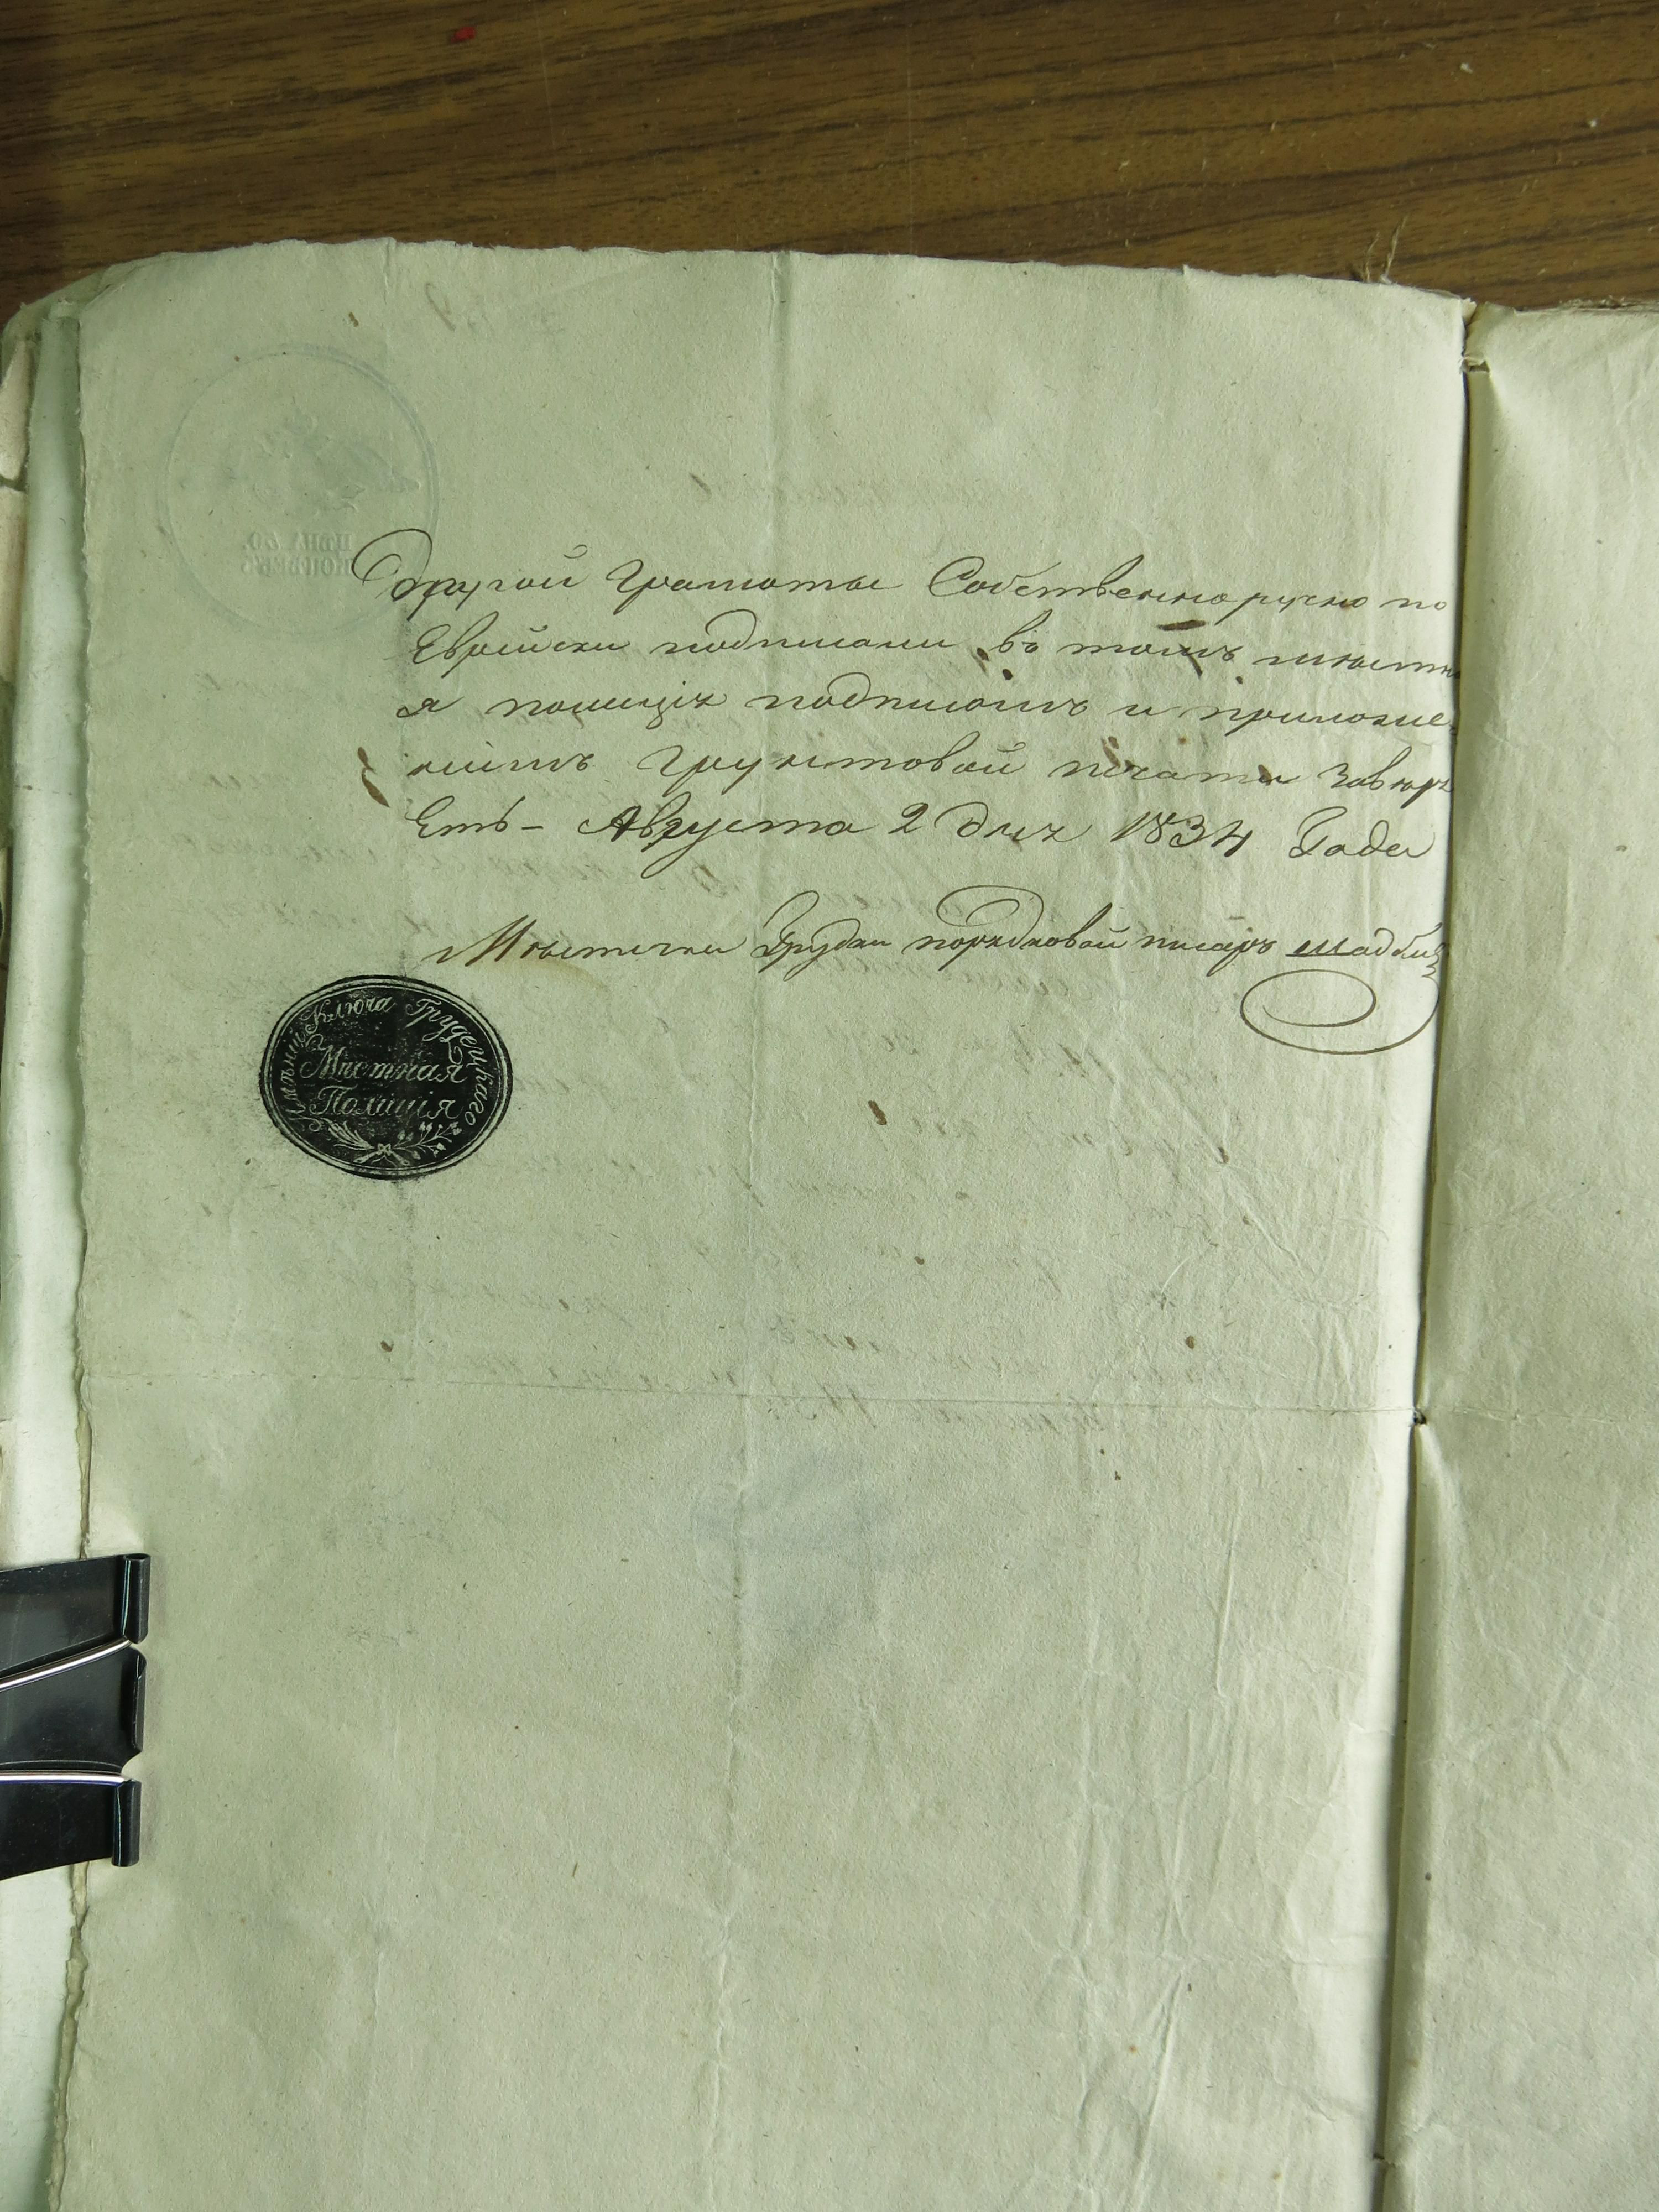 другой грамоты Собственноручно по
Еврейски подписали въ томъ мѣстна
я полиція подписомъ и приложе
ніимъ Грунтовой печати Завѣря
Етъ - Августа 2 дня 1834 Года
Мѣстечка Грудки порядковой писаръ
Имѣнии Ключа Грудецкаго
Мѣстная
Полиція
ЦѢНА 50.
КОПѢЕКЪ